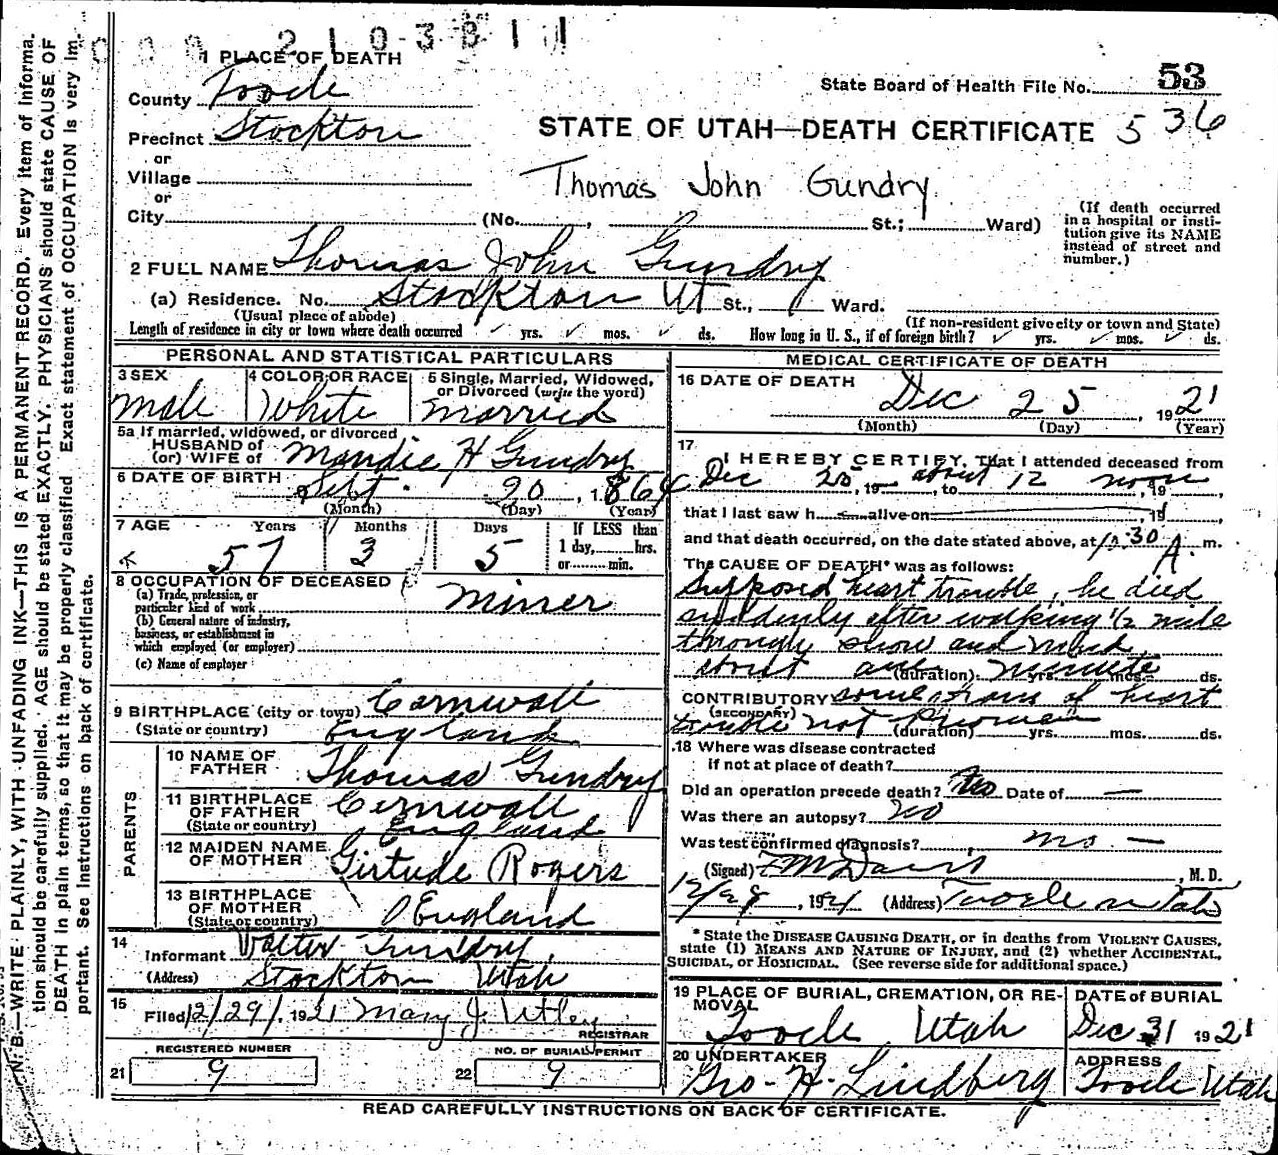 2103811
1 PLACE OF DEATH
County Tooele
State Board of Health File No. 53
Precinct Stockton
STATE OF UTAH—DEATH CERTIFICATE 536
or
Village
Thomas John Gundry
or
City (No. , St.; Ward)
(If death occurred in a hospital or insti-
tution give its NAME
instead of street and
number.)
2 FULL NAME Thomas John Gundry
(a) Residence. No. Stockton Ut St., Ward.
(Usual place of abode)
(If non-resident give city or town and State)
Length of residence in city or town where death occurred yrs. mos. ds. How long in U. S., if of foreign birth? yrs. mos. ds.
PERSONAL AND STATISTICAL PARTICULARS
3 SEX
Male
4 COLOR OR RACE
White
5 Single, Married, Widowed,
or Divorced (write the word)
Married
5a If married, widowed, or divorced
HUSBAND of
(or) WIFE of Mandie H Gundry
6 DATE OF BIRTH Sept. 20, 1864
(Month) (Day) (Year)
7 AGE Years Months Days If LESS than
57 3 5 1 day, hrs.
or min.
8 OCCUPATION OF DECEASED
(a) Trade, profession, or
particular kind of work Miner
(b) General nature of industry,
business, or establishment in
which employed (or employer)
(c) Name of employer
9 BIRTHPLACE (city or town) Cornwall
(State or country) England
PARENTS
10 NAME OF
FATHER Thomas Gundry
11 BIRTHPLACE
OF FATHER Cornwall
(State or country) England
12 MAIDEN NAME
OF MOTHER Girtude Rogers
13 BIRTHPLACE
OF MOTHER England
(State or country)
14
Informant Walter Gundry
(Address) Stockton Utah
15
Filed 12/29/, 1921 Mary J. Utley
REGISTRAR
REGISTERED NUMBER
21 9
NO. OF BURIAL PERMIT
22 9
MEDICAL CERTIFICATE OF DEATH
16 DATE OF DEATH Dec 25, 1921
(Month) (Day) (Year)
17
I HEREBY CERTIFY, That I attended deceased from
Dec 25, 19 about, to 12 noon, 19
that I last saw h alive on , 19
and that death occurred, on the date stated above, at 30 A. m.
The CAUSE OF DEATH* was as follows:
Supposed heart trouble, he died
suddenly after walking 1/2 mile
through snow and wind
about one minute
(duration) yrs. mos. ds.
CONTRIBUTORY some of heart
(SECONDARY)
trouble not
(duration) yrs. mos. ds.
18 Where was disease contracted
if not at place of death?
Did an operation precede death? No Date of —
Was there an autopsy? No
Was test confirmed diagnosis? no —
(Signed) F M Davis, M. D.
12/28, 1921 (Address) Tooele Utah
* State the DISEASE CAUSING DEATH, or in deaths from VIOLENT CAUSES,
state (1) MEANS AND NATURE OF INJURY, and (2) whether ACCIDENTAL,
SUICIDAL, or HOMICIDAL. (See reverse side for additional space.)
19 PLACE OF BURIAL, CREMATION, OR RE-
MOVAL
Tooele Utah
DATE of BURIAL
Dec 31 1921
20 UNDERTAKER
Geo. H. Lindberg
ADDRESS
Tooele Utah
READ CAREFULLY INSTRUCTIONS ON BACK OF CERTIFICATE.
N. B.—WRITE PLAINLY, WITH UNFADING INK—THIS IS A PERMANENT RECORD. Every item of informa-
tion should be carefully supplied. AGE should be stated EXACTLY. PHYSICIANS should state CAUSE OF
DEATH in plain terms, so that it may be properly classified. Exact statement of OCCUPATION is very im-
portant. See instructions on back of certificate.